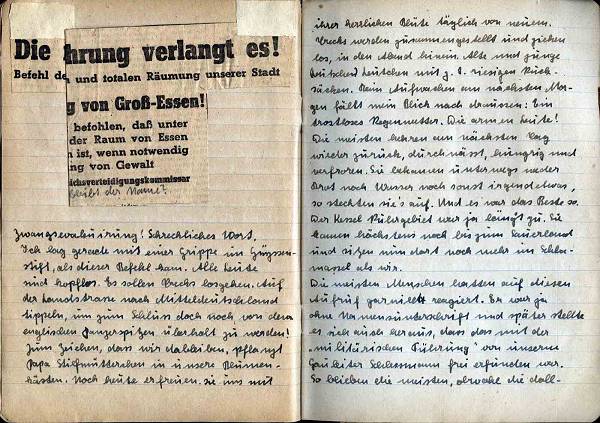 Die
hrung verlangt es!
Befehl de
n und totalen Räumung unserer Stadt
g von Groß-Essen!
befohlen, daß unter
der Raum von Essen
n ist, wenn notwendig
ng von Gewalt
ichsverteidigungskommissar
bleibt der Name?
Zwangsevakuirung! Schreckliches Wort.
Ich lag gerade mit einer Grippe im
stift, als dieser Befehl kam. Alle Leute
sind kopflos. Es sollen Trecks losgehen. Auf
der Landstrasse nach Mitteldeutschland
tippeln, um zum Schluss doch noch von den
englischen Panzerspitzen überholt zu werden!
Zum Zeichen, dass wir dableiben, pflanzt
Papa Stiefmütterchen in unsere Blumen-
kästen. Noch heute erfreuen sie uns mit
ihrer herrlichen Blüte täglich von neuem.
Trecks werden zusammengestellt und ziehen
los, in den Abend hinein. Alte und junge
Leutchen mit z. T. riesigen Ruck-
säcken. Beim Aufwachen am nächsten Mor-
gen fällt mein Blick nach draussen: Ein
trostloses Regenwetter. Die armen Leute!
Die meisten kehren am nächsten Tag
wieder zurück, durchnässt, hungrig und
verfroren. Sie bekamen unterwegs weder
Brot noch Wasser noch sonst irgendetwas,
so steckten sie's auf. Und es war das Beste so.
Der Kessel Ruhrgebiet war ja längst zu. Sie
kamen höchstens noch bis zum Sauerland
und sitzen nun dort noch mehr im Schla-
massel als wir.
Die meisten Menschen hatten auf diesen
Aufruf garnicht reagiert. Er war ja
ohne Namensunterschrift und später stellte
es sich auch heraus, dass das mit der
"militärischen Führung" von unserm
Gauleiter Schlessmann frei erfunden war.
So blieben die meisten, obwohl die doll-